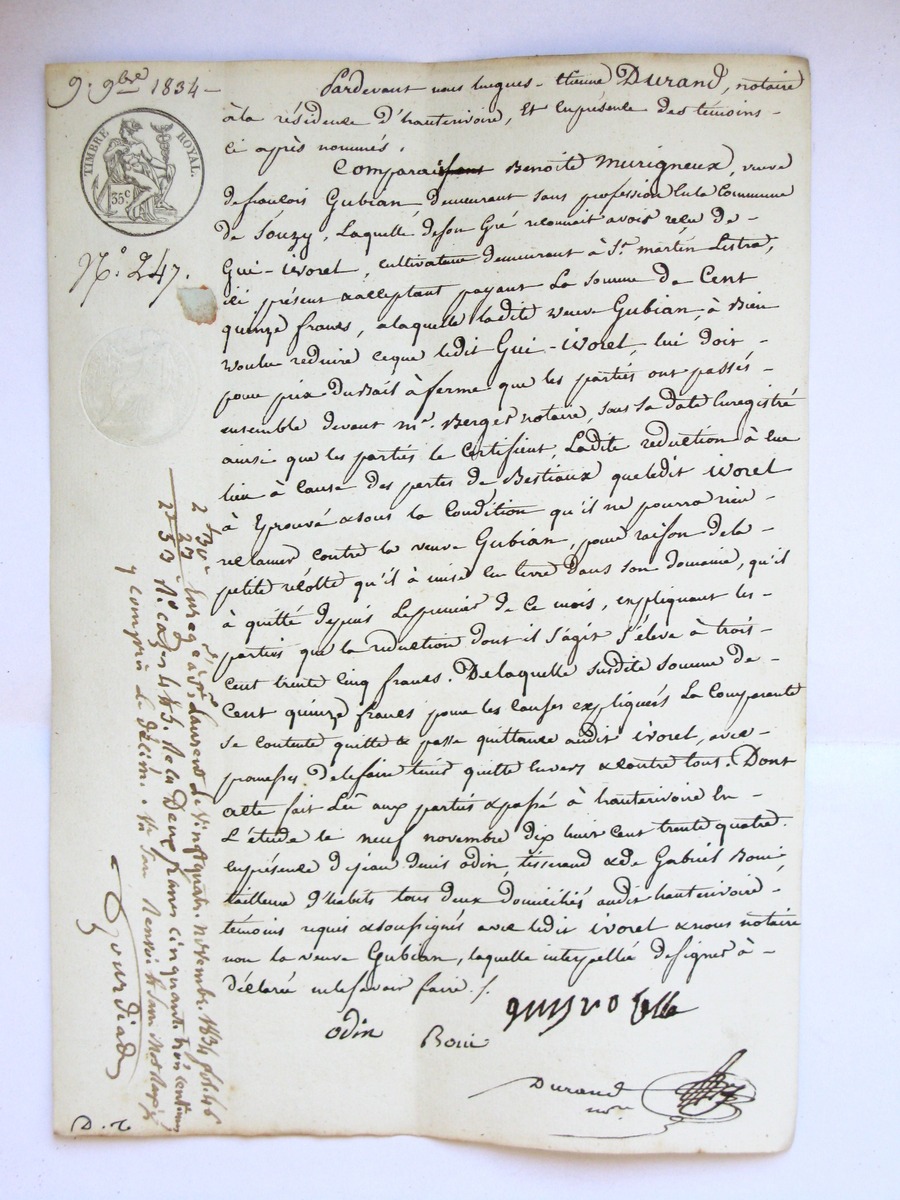 9. 9bre 1834 -
TIMBRE ROYAL.
35c
No. 247.
Pardevant nous hugues - Etienne Durand, notaire
à la résidence d'hauterivoire, Et en présence des témoins -
ci après nommés.
Comparait Benoite Murigneux, veuve
de françois Gubian, demeurant sans profession En la Commune
de Souzy, Laquelle de son Gré reconnait avoir reçu de -
Gui - ivorel, cultivateur demeurant à St. martin Lestra,
ici présent acceptant payant La somme de Cent
quinze francs, a laquelle ladite veuve Gubian, à Bien
voulu reduire ce que ledit Gui - ivorel, lui doit -
pour prix du Bail à ferme que les parties ont passés -
ensemble devant mr. Berger notaire, sous sa date Enregistré
ainsi que les parties le Certifient, Ladite reduction à eue
lieu à Cause des pertes de Bestiaux que ledit ivorel
à Eprouvé & sous la Condition qu'il ne pourra rien -
reclamer contre la veuve Gubian, pour raison de la -
petite récolte qu'il à mise En terre dans son domaine, qu'il
à quitté depuis Le premier de Ce mois, expliquant les -
parties que la reduction dont il s'agit s'élève à trois -
Cent trente Cinq francs. De laquelle susdite somme de -
Cent quinze francs pour les causes expliqués La Comparente
se contente quitte & passe quittance audit ivorel, avec -
promesses de le faire tenir quitte Envers & contre tous. Dont
acte fait Lû aux parties & passé à hauterivoire En -
L'étude le neuf novembre dix huit Cent trente quatre.
En présence de jean denis odin, tisserand & de Gabriel Boui,
tailleur d'habits tous deux domiciliés audit hauterivoire -
témoins requis & soussignés avec ledit ivorel & nous notaire
non la veuve Gubian, laquelle interpellée de signer à -
déclaré ne le savoir faire ./.
odin
Boui
Durand
nre
2 f 30
23
2 f 53
Enregé à St. Laurent le vingt quatre novembre 1834 fol. 46
Ro. cases 4 & 5. Reçu Deux francs cinquante trois centimes
y compris le décime.
D. t.